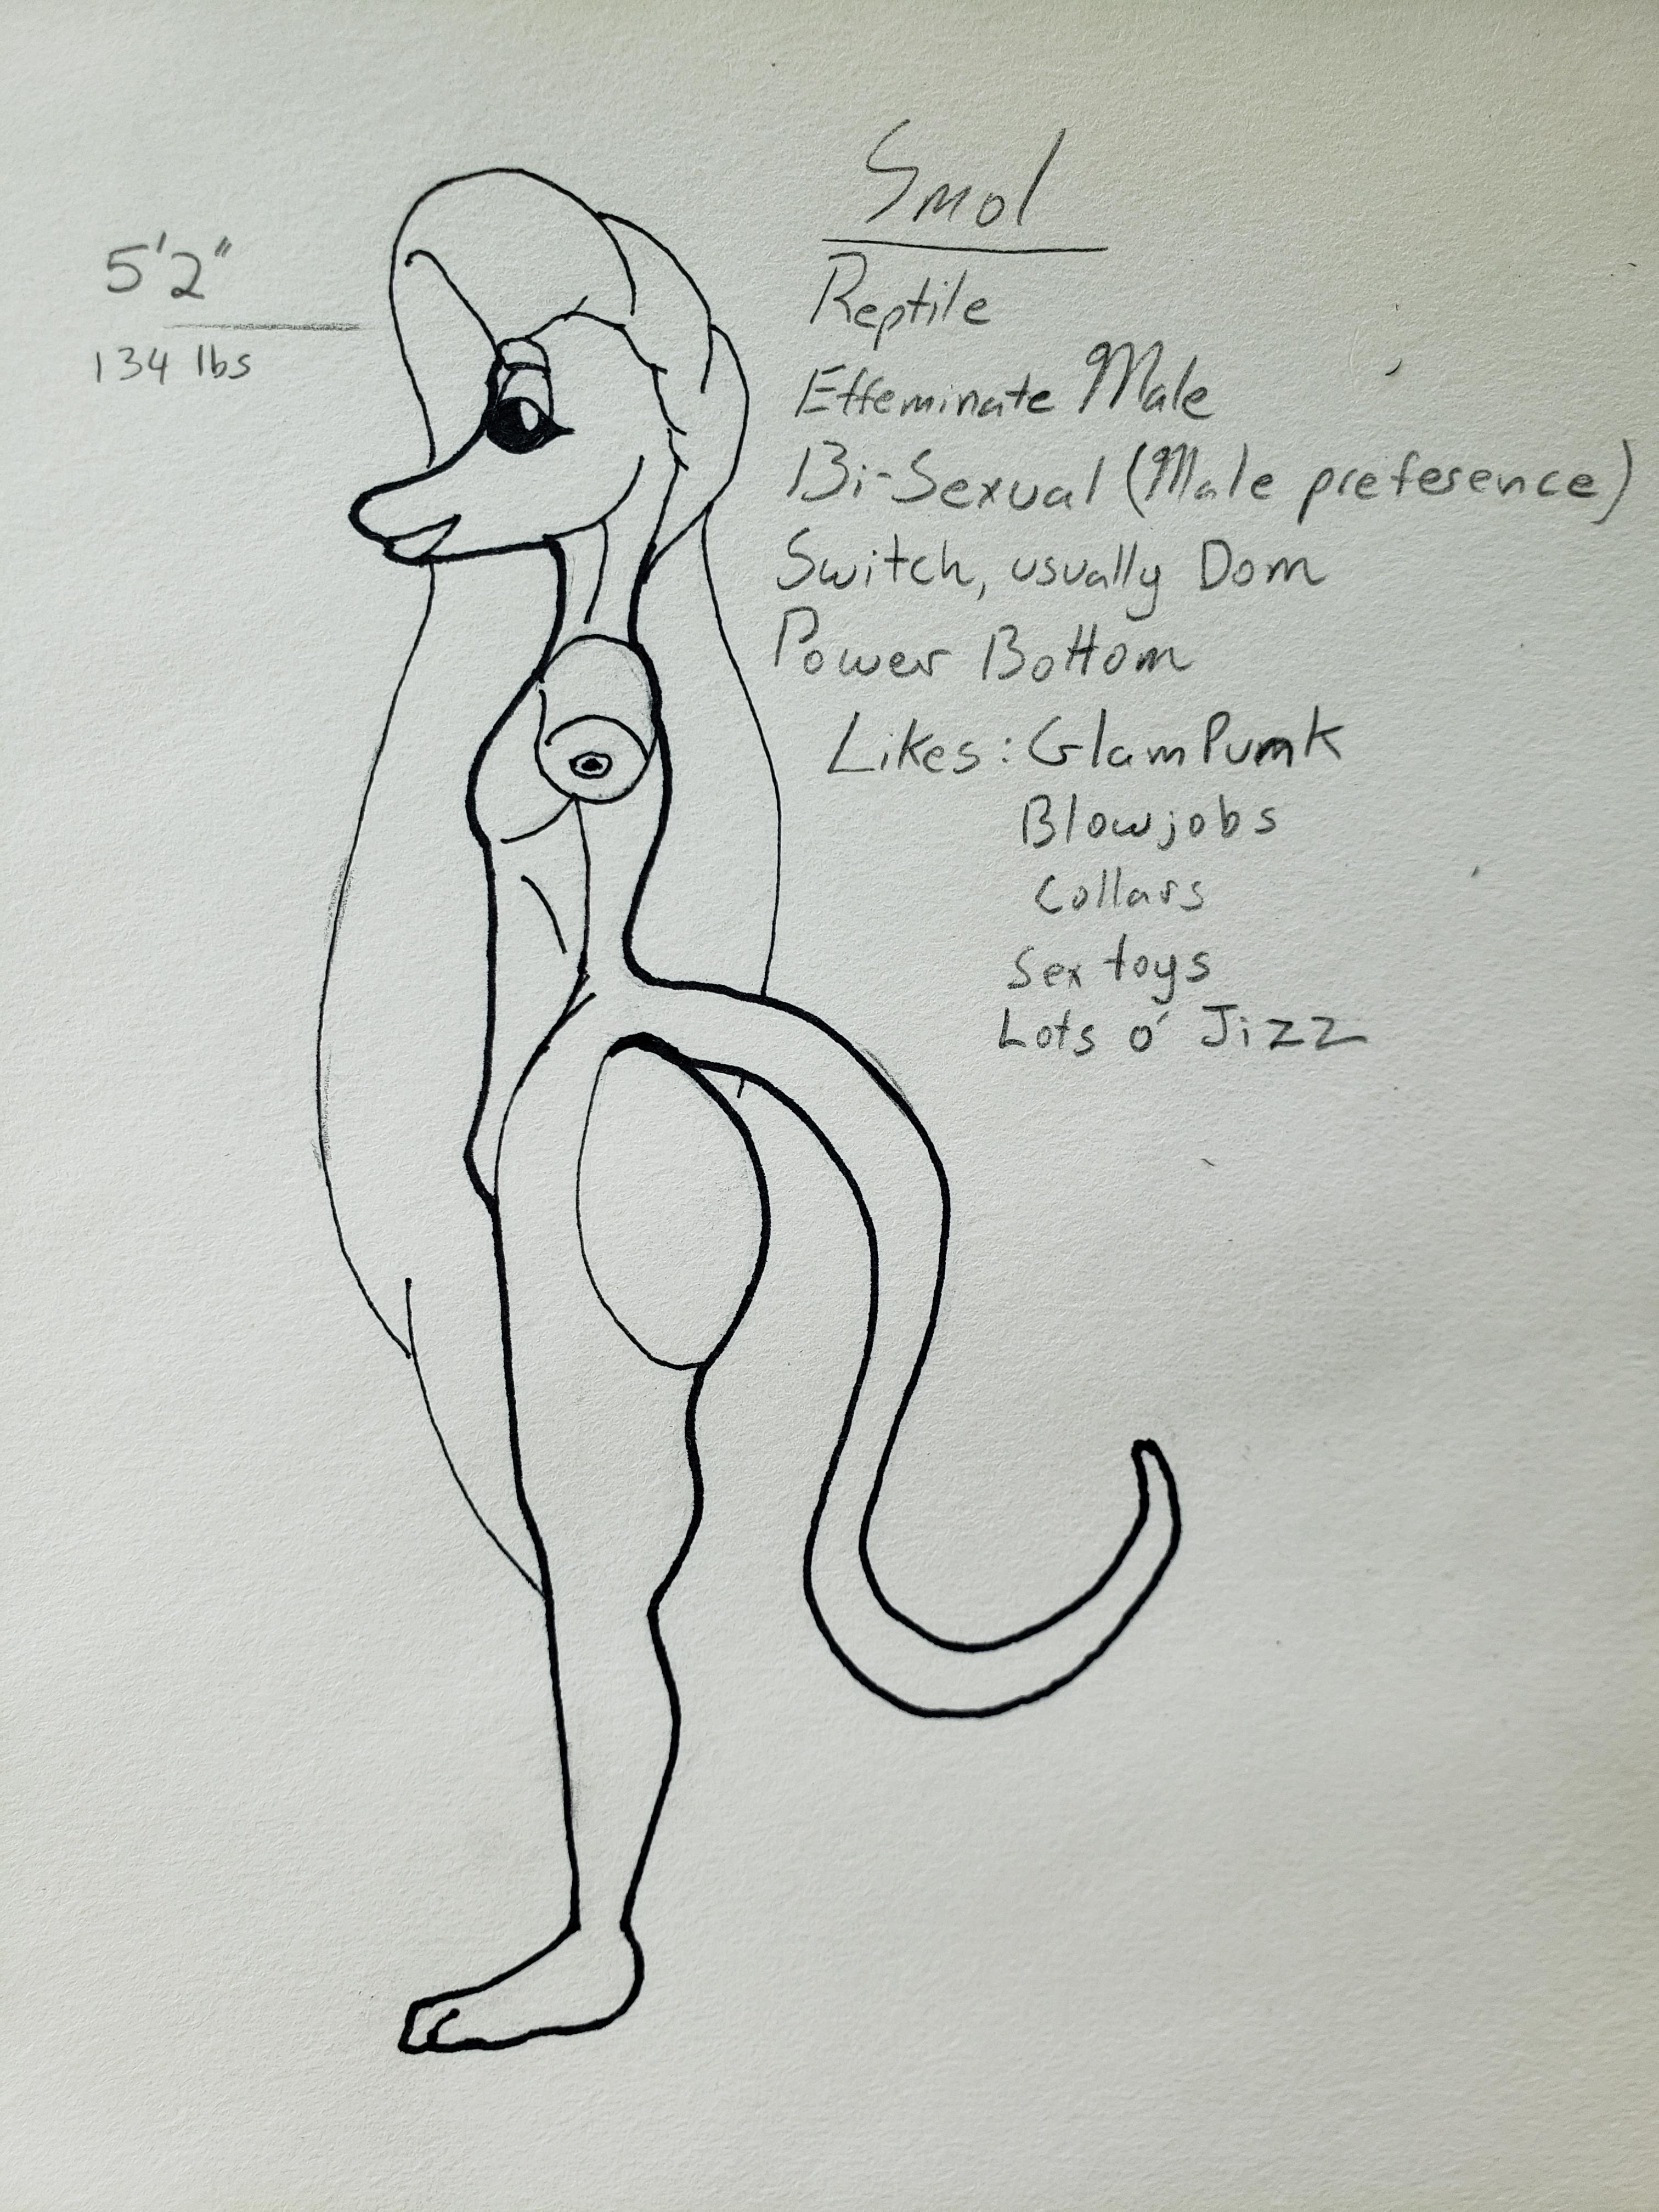 Smol
5'2"
134 lbs
Reptile
Effeminate Male
Bi-Sexual (Male preference)
Switch, usually Dom
Power Bottom
Likes: GlamPunk
Blowjobs
Collars
Sex toys
Lots o' Jizz